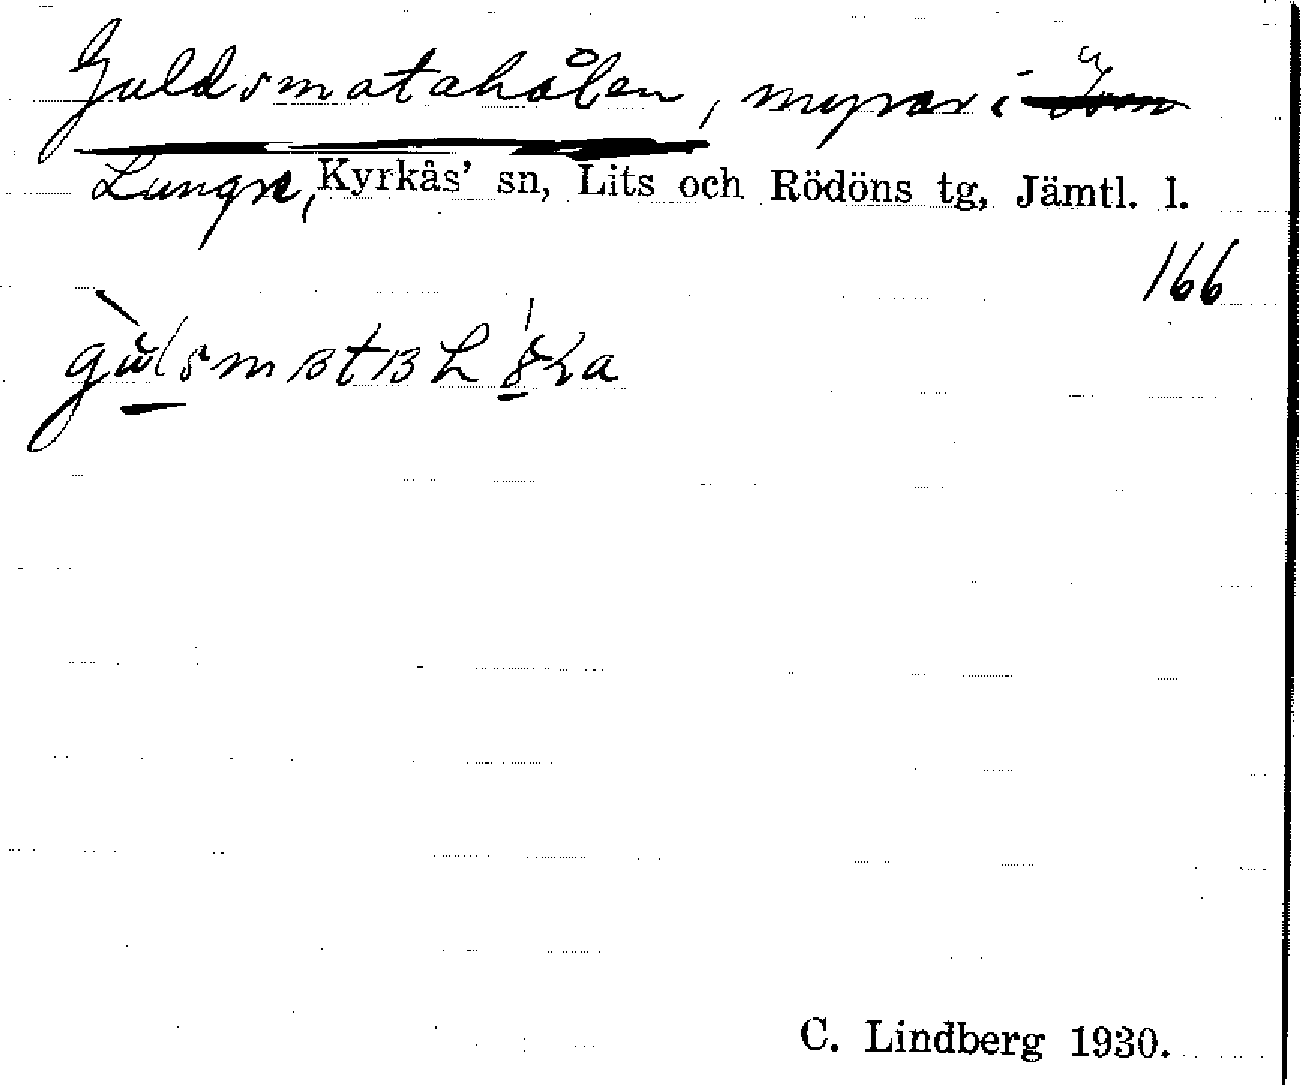 Guldsmatahålen, myrar i
Lungre, Kyrkås' sn, Lits och Rödöns tg, Jämtl. l.
166
C. Lindberg 1930.